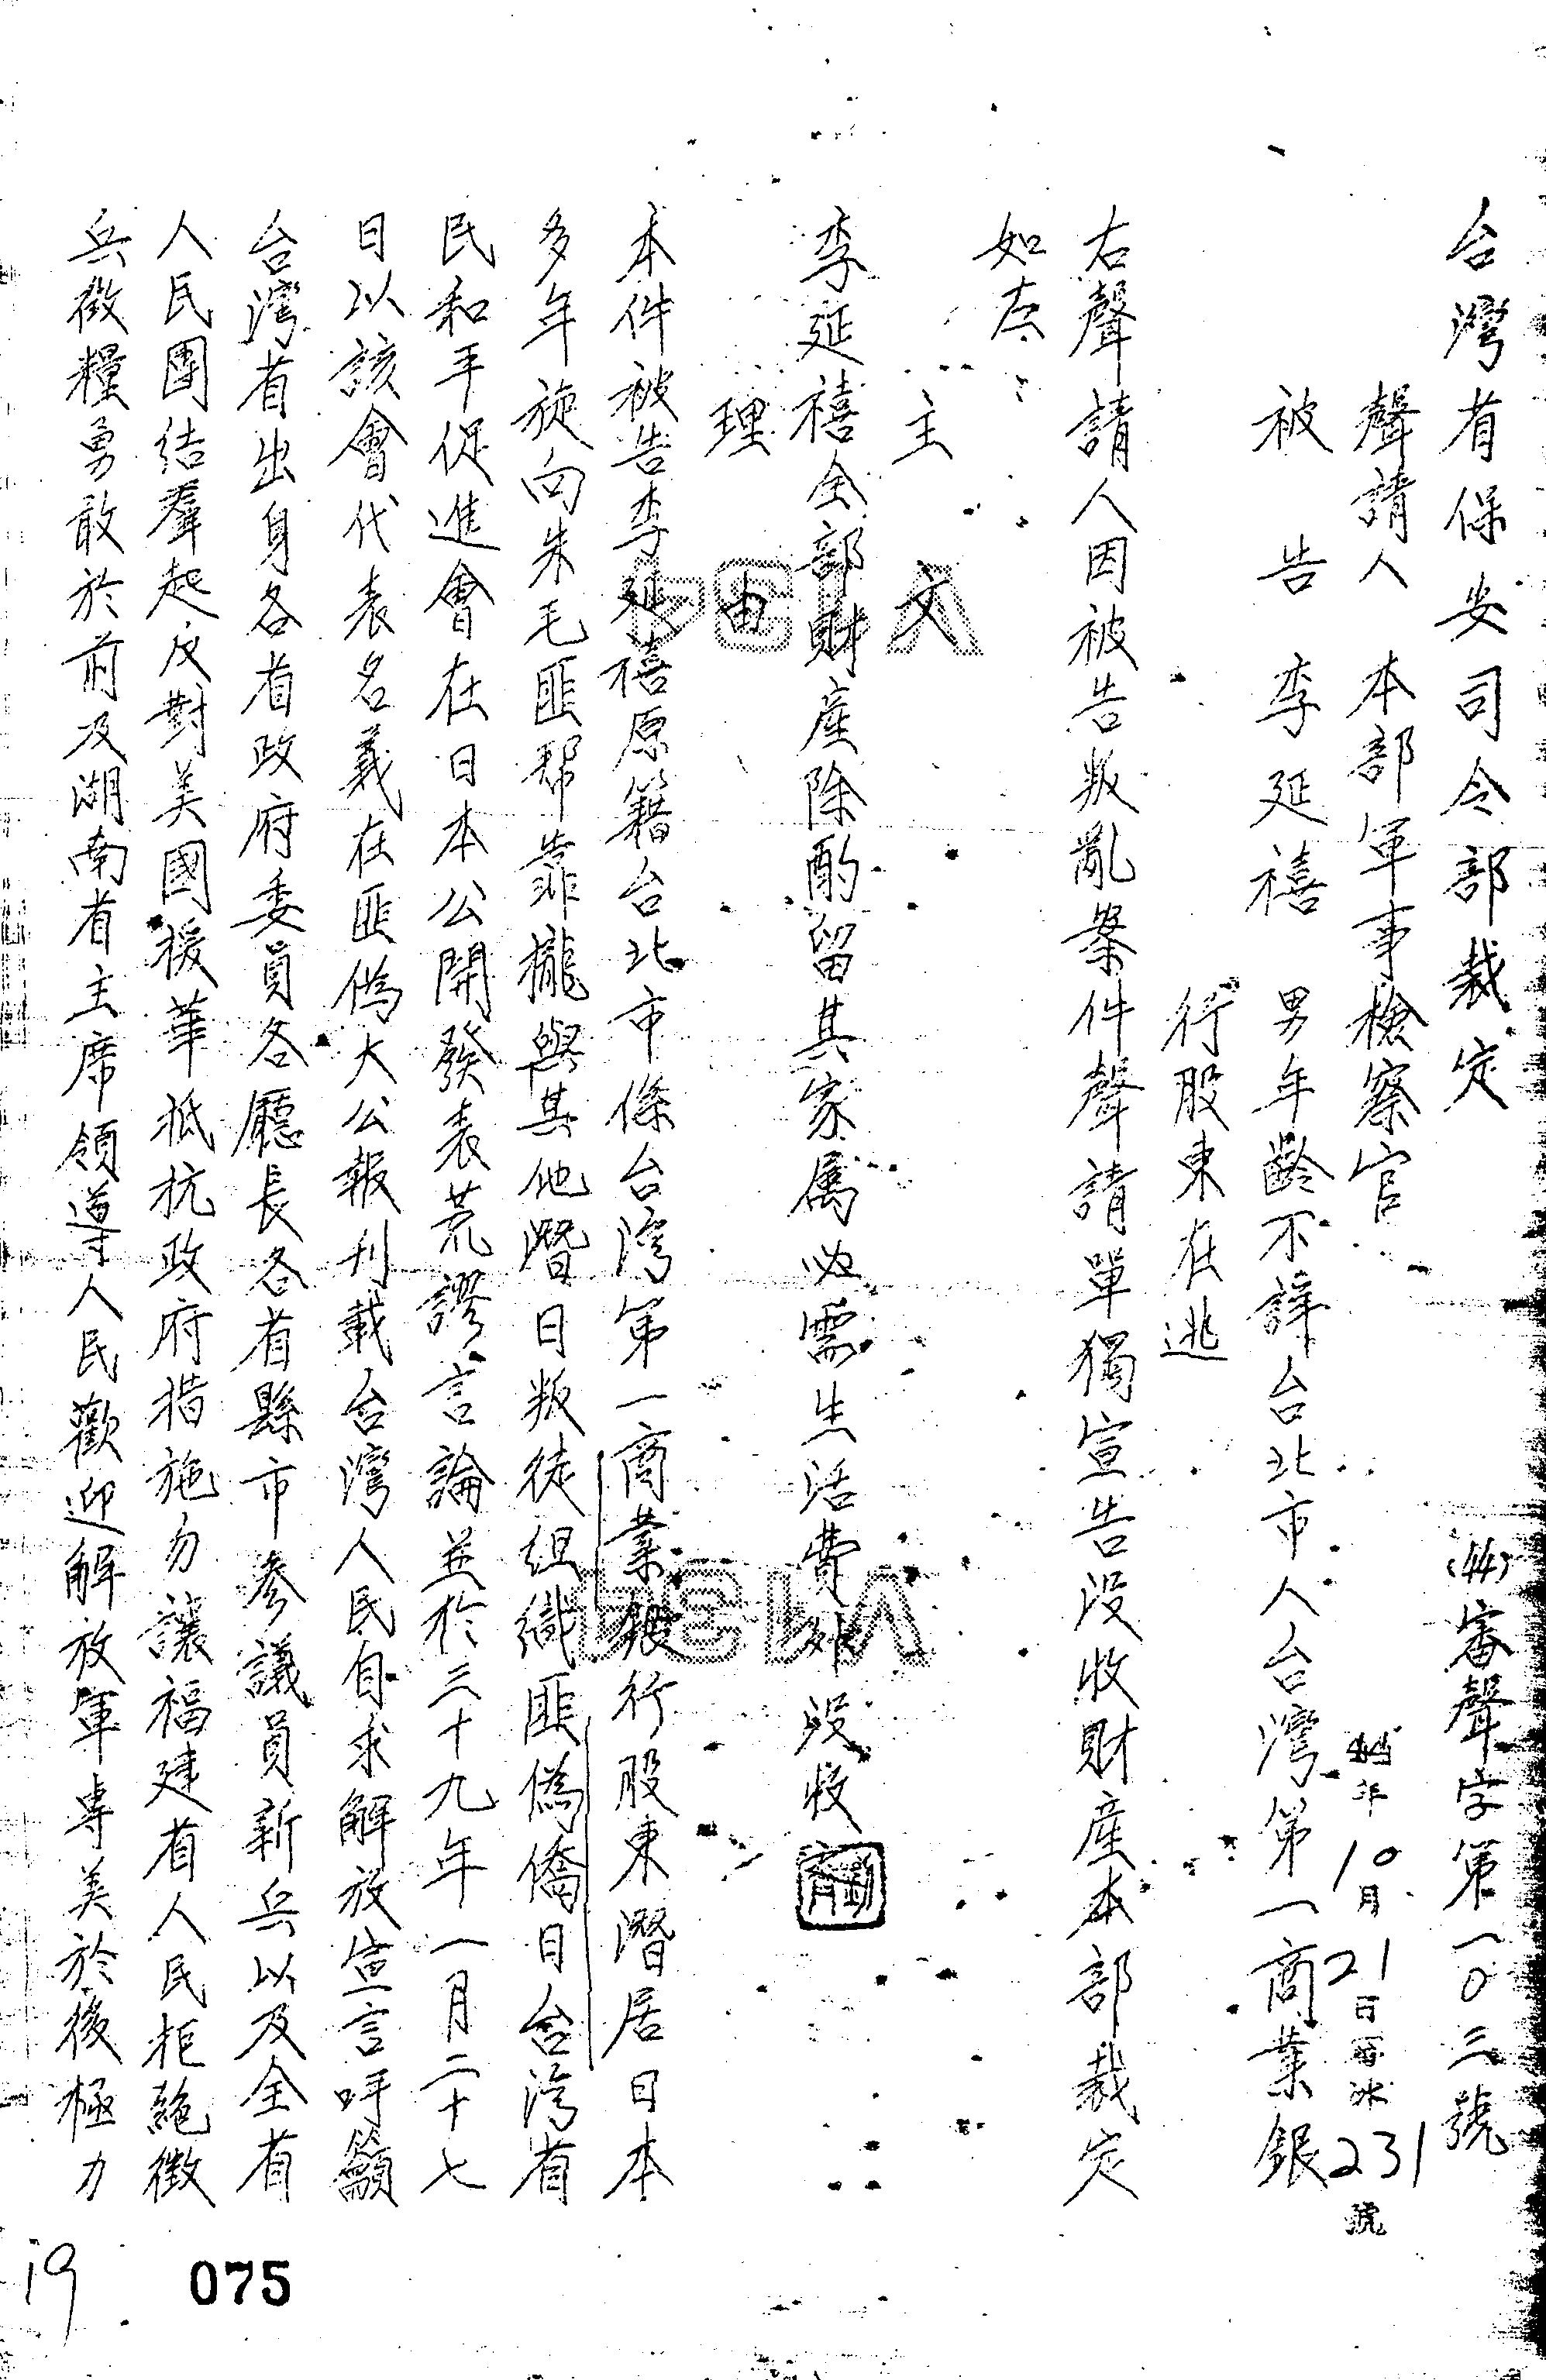 台灣省保安司令部裁定
(44)審聲字第一〇三號
聲請人 本部軍事檢察官
44年10月21日
231號
被告 李延禧 男年齡不詳台北市人台灣第一商業銀
行股東在逃
右聲請人因被告叛亂案件聲請單獨宣告没收財產本部裁定
如左:
主文
李延禧全部財產除酌留其家屬必需生活費外没收
理由
本件被告李延禧原籍台北市係台灣第一商業銀行股東潛居日本
多年旋向朱毛匪幫靠攏與其他潛日叛徒組織匪偽僑日台湾省
民和平促進會在日本公開發表荒謬言論並於三十九年一月二十七
日以該會代表名義在匪偽大公報刊載台灣人民自求解放宣言呼籲
台灣省出身各省政府委員各廳長各省縣市參議員新兵以及全省
人民團结羣起反對美國援華抵抗政府措施勿讓福建省人民拒絕徵
兵徵糧勇敢於前及湖南省主席領導人民歡迎解放軍專美於後極力
19
075